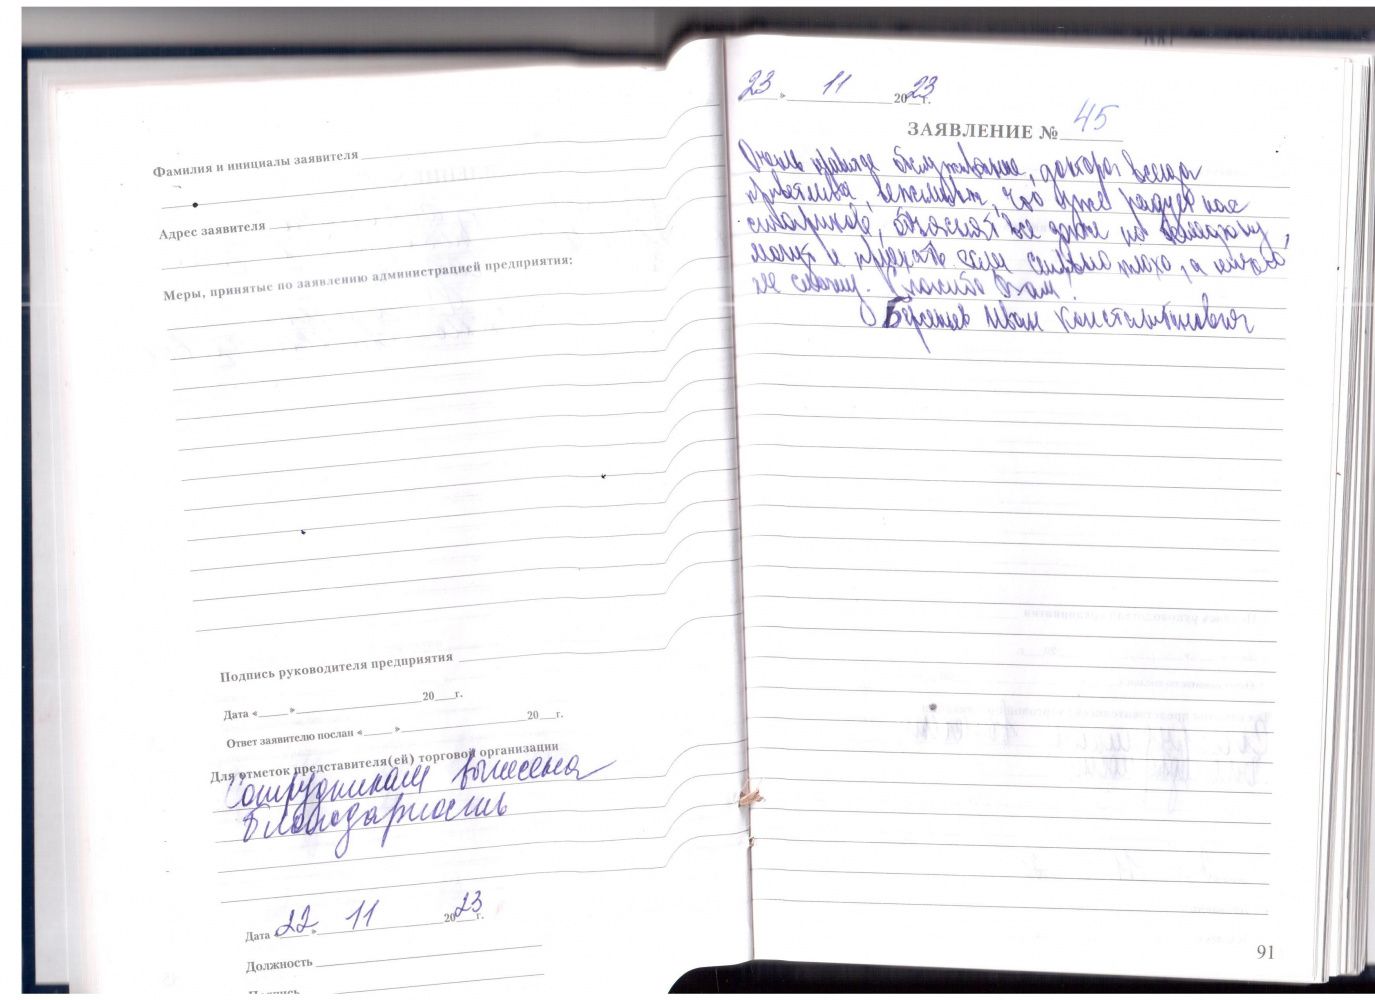 Фамилия и инициалы заявителя
Адрес заявителя
Меры, принятые по заявлению администрацией предприятия:
Подпись руководителя предприятия
Дата « » 20 г.
Ответ заявителю послан « » 20 г.
Для отметок представителя(ей) торговой организации
Сотрудникам вынесена
благодарность
Дата « 22 » 11 20 23 г.
Должность
Подпись
23 » 11 20 23 г.
ЗАЯВЛЕНИЕ № 45
Очень обслуживание, доктора всегда
приветливы, вежливы, что уже радует нас
стариков, объяснят все даже по
могут и принять если сильно плохо, а
не смогу. Спасибо Вам!
Иван Константинович
91